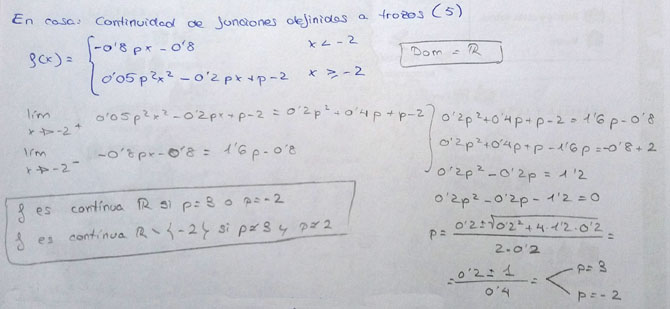 En casa: Continuidad de funciones definidas a trozos (5)
f(x) = { -0'8px - 0'8    x < -2
0'05p²x² - 0'2px + p - 2    x ≥ -2
Dom = ℝ
lím x→-2⁺ 0'05p²x² - 0'2px + p - 2 = 0'2p² + 0'4p + p - 2
lím x→-2⁻ -0'8px - 0'8 = 1'6p - 0'8
0'2p² + 0'4p + p - 2 = 1'6p - 0'8
0'2p² + 0'4p + p - 1'6p = -0'8 + 2
0'2p² - 0'2p = 1'2
0'2p² - 0'2p - 1'2 = 0
p = (0'2 ± √(0'2² + 4·1'2·0'2)) / (2·0'2) =
= (0'2 ± 1) / 0'4 = < p = 3
p = -2
f es continua ℝ si p = 3 o p = -2
f es continua ℝ \ {-2} si p ≠ 3 y p ≠ 2